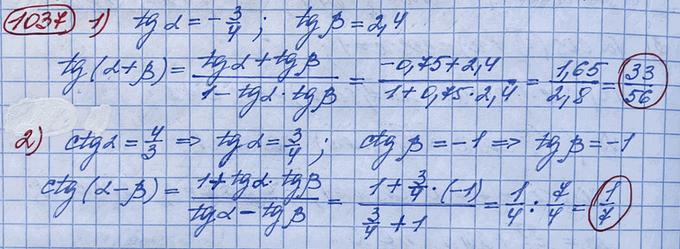 1037 1) tg α = -3/4 ; tg β = 2,4
tg(α+β) = (tgα + tgβ)/(1 - tgα · tgβ) = (-0,75+2,4)/(1+0,75·2,4) = 1,65/2,8 = 33/56
2) ctgα = 4/3 => tgα = 3/4 ; ctgβ = -1 => tgβ = -1
ctg(α-β) = (1+tgα·tgβ)/(tgα - tgβ) = (1+3/4·(-1))/(3/4+1) = 1/4 : 7/4 = 1/7